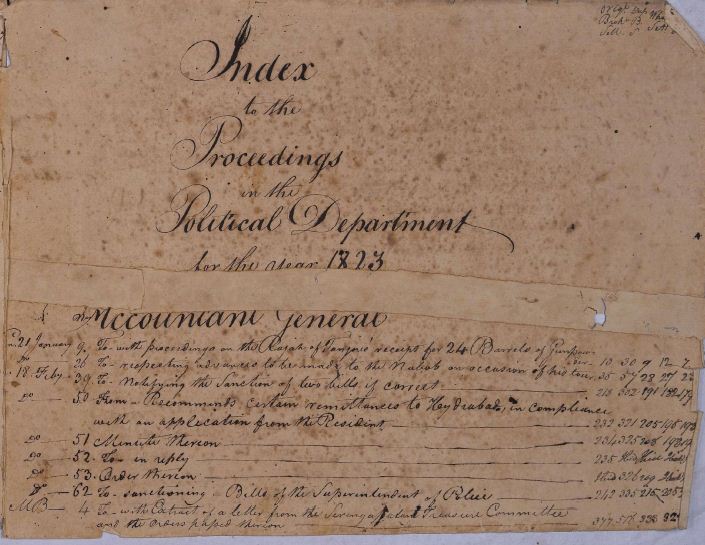 Index
to the
Proceedings
in the
Political Department
for the year 1823
Accountant General
21 January 9. To with proceedings on the Rajah of Tanjore' receipt for 24 Barrels of Gunpow-
der 10 30 9 12 7
do 21 To respecting advances to be made to the Nabob on occasion of his tour 35 57 28 27 22
18 Feby 39 To Notifying the Sanction of two bills if correct 218 302 191 182 179
do 50 From Recommends certain remittances to Hydrabad, in compliance
with an application from the Resident 232 321 205
do 51 Minute thereon 234 325 208
do 52. To in reply 235
do 53. Order thereon 326 209
do 62 To sanctioning Bills of the Superintendent of Police 242 335 215
4 To with Extract of a letter from the Seringapatam Treasure Committee
and the orders passed thereon 377 518 338